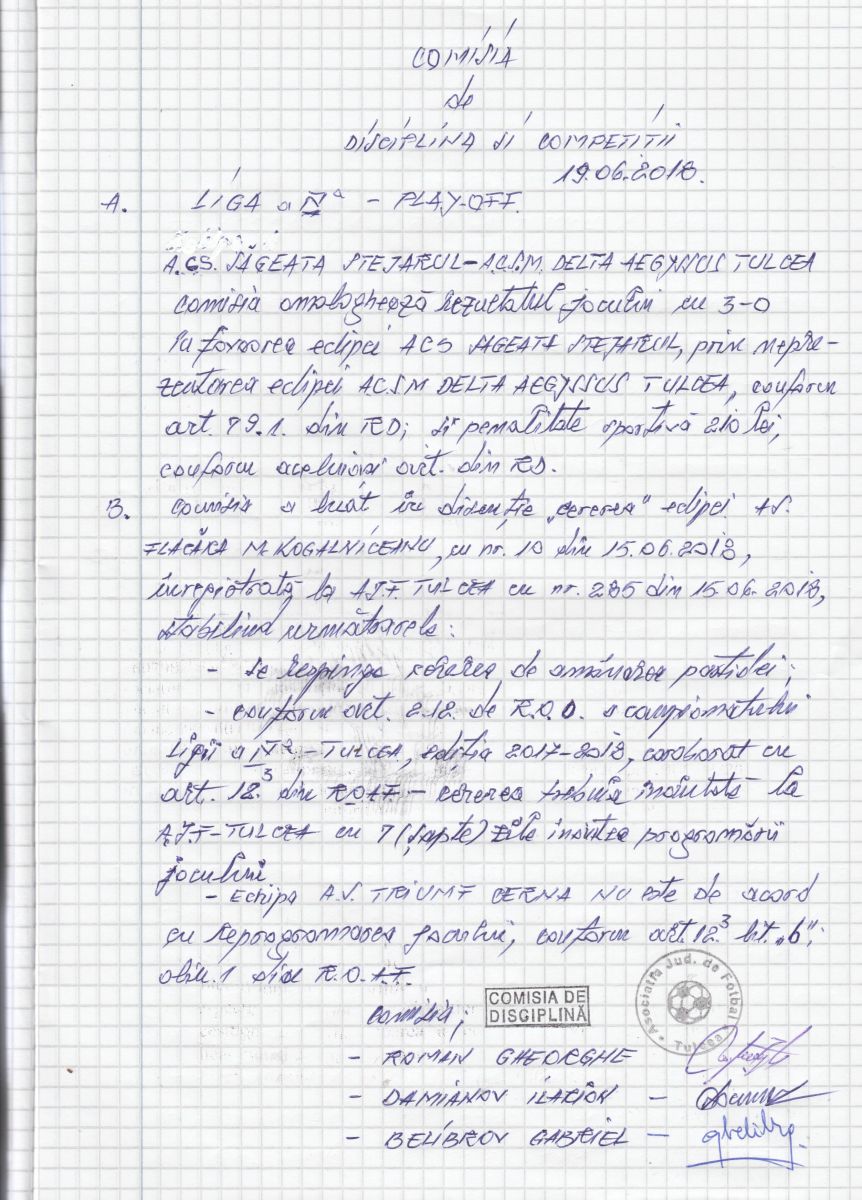 COMISIA
de
DISCIPLINA SI COMPETITII
19.06.2018.
A. LIGA a IV a - PLAY-OFF.
A.CS. SĂGEATA STEJARUL-A.C.S.M. DELTA AEGYSSUS TULCEA
comisia omologhează rezultatul jocului cu 3-0
în favoarea echipei ACS SAGEATA STEJARUL, prin nepre-
zentarea echipei A.C.S.M DELTA AEGYSSUS TULCEA, conform
art. 79.1. din RD; și penalitate sportivă 210 lei,
conform aceluiași art. din RD.
B. Comisia a luat în discuție „cererea" echipei AS.
FLACĂRA M. KOGALNICEANU, cu nr. 10 din 15.06.2018,
înregistrată la AJF. TULCEA cu nr. 285 din 15.06.2018,
stabilind următoarele:
- se respinge cererea de amânarea partidei;
- conform art. 2.12. de R.O.D. a campionatului
Ligii a IV a - TULCEA, ediția 2017-2018, coroborat cu
art. 18.3 din ROAF - cererea trebuia înaintată la
A.J.F-TULCEA cu 7 (șapte) zile înaintea programării
jocului
- Echipa A.S. TRIUMF CERNA NU este de acord
cu reprogramarea jocului, conform art. 18.3 lit. „b";
alin. 1 din R.O.A.F.
COMISIA DE
DISCIPLINĂ
Asociatia Jud. de Fotbal
Tulcea
Comisia;
- ROMAN GHEORGHE
- DAMIANOV ILARION -
- BELIBROV GABRIEL -